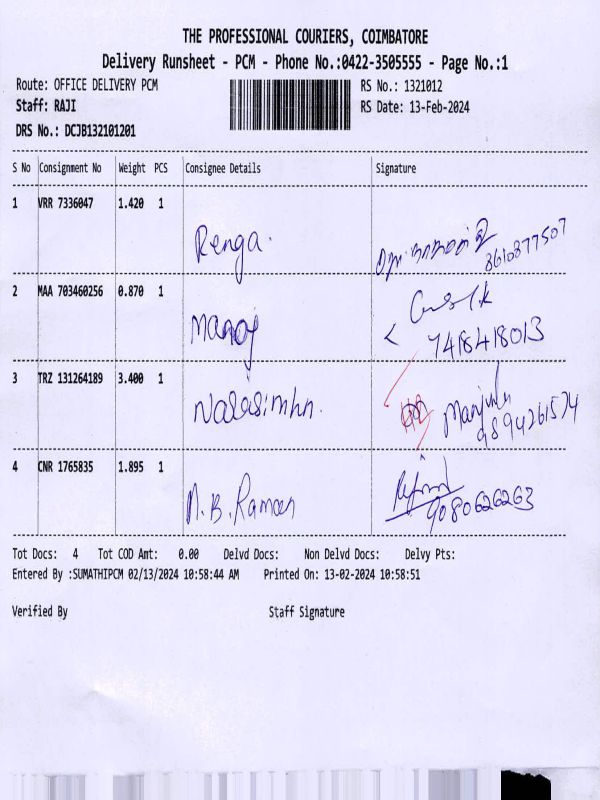 THE PROFESSIONAL COURIERS, COIMBATORE
Delivery Runsheet - PCM - Phone No.:0422-3505555 - Page No.:1
Route: OFFICE DELIVERY PCM
RS No.: 1321012
Staff: RAJI
RS Date: 13-Feb-2024
DRS No.: DCJB132101201
S No Consignment No Weight PCS Consignee Details Signature
1 VRR 7336047 1.420 1
Renga.
8610877507
2 MAA 703460256 0.870 1
Manoj
7418418013
3 TRZ 131264189 3.400 1
Narasimhn. Manjula
9894261574
4 CNR 1765835 1.895 1
M.B. Raman
9080626263
Tot Docs: 4 Tot COD Amt: 0.00 Delvd Docs: Non Delvd Docs: Delvy Pts:
Entered By :SUMATHIPCM 02/13/2024 10:58:44 AM Printed On: 13-02-2024 10:58:51
Verified By Staff Signature